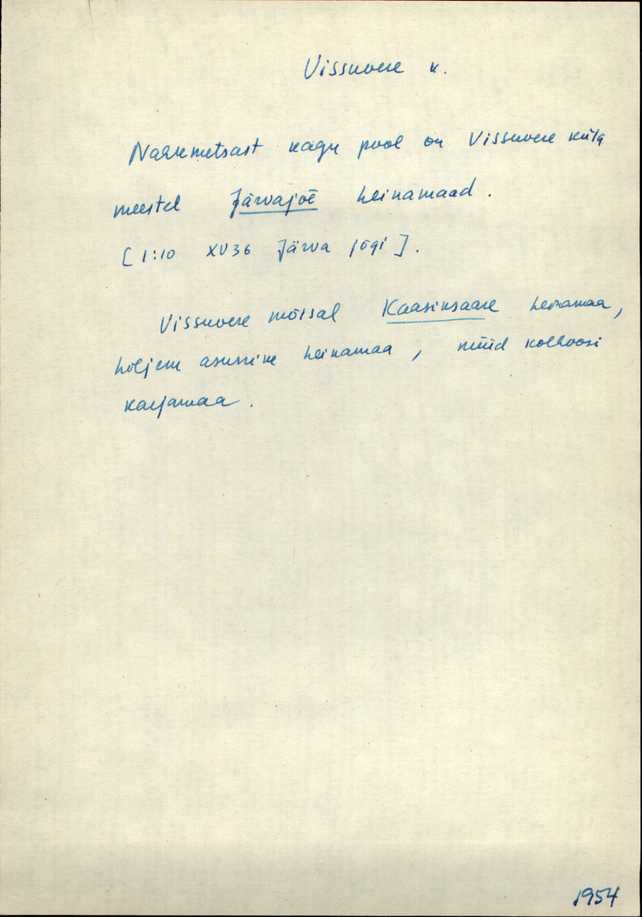 Vissuvere k.
Naaremetsast kagu pool on Vissuvere küla
meestel Järvajõe heinamaad.
[1:10 XV36 Järva jõgi].
Vissuvere mõisal Kaasiksaare heinamaa,
hiljem asunike heinamaa, nüüd kolhoosi
karjamaa.
1954